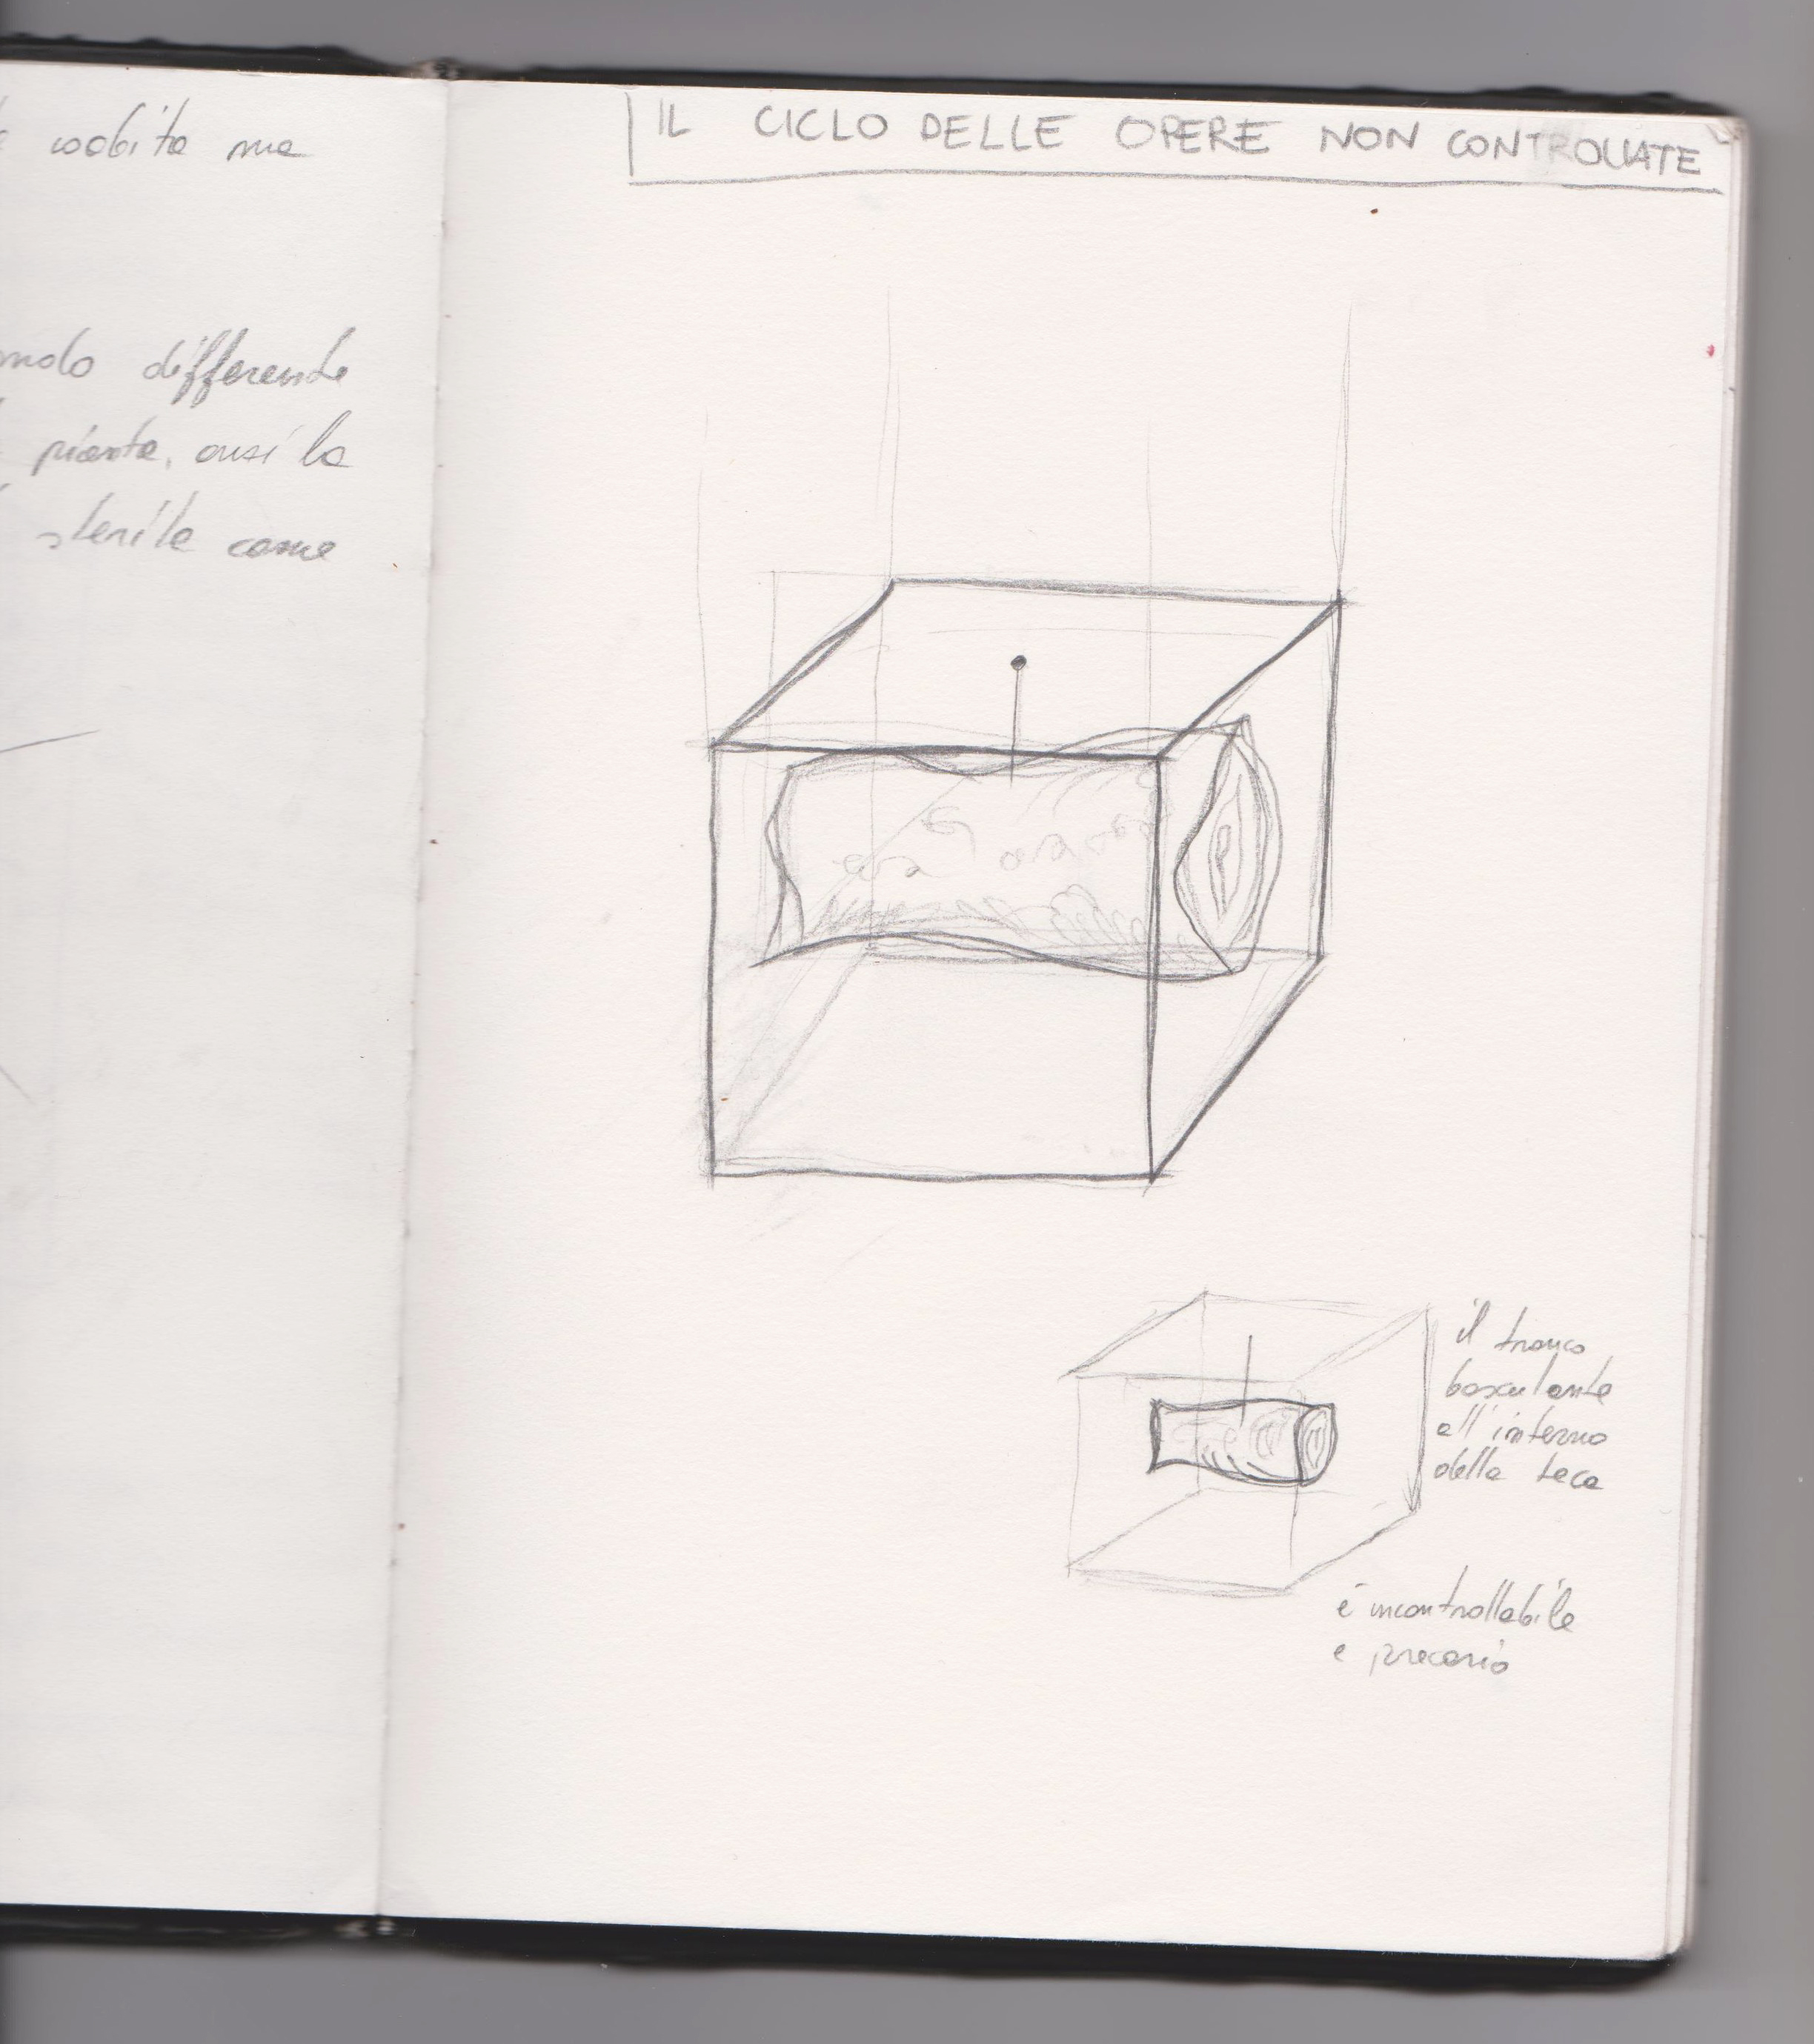 coabita ma
modo differente
pianta, così la
sterile come
IL CICLO DELLE OPERE NON CONTROLLATE
il tronco
basculante
all'interno
della teca
è incontrollabile
e precario